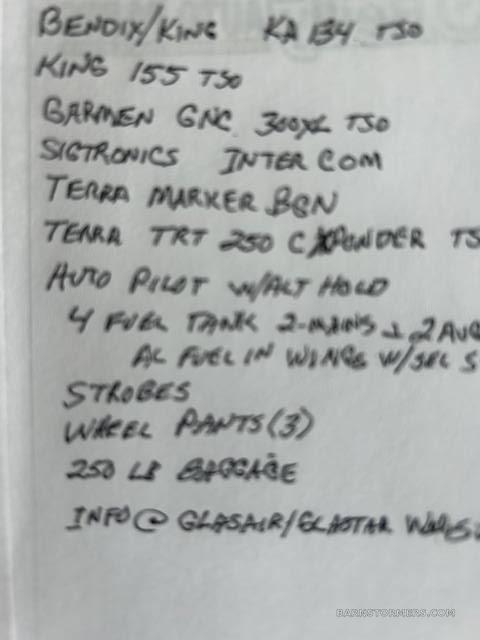 BENDIX/KING KA 134 TSO
KING 155 TSO
GARMEN GNC 300XL TSO
SIGTRONICS INTER COM
TERRA MARKER BCN
TERRA TRT 250 C XPONDER TS
AUTO PILOT W/ALT HOLD
4 FUEL TANK 2-MAINS & 2 AUG
AL FUEL IN WINGS W/SEL S
STROBES
WHEEL PANTS (3)
250 LB BAGGAGE
INFO@ GLASAIR/GLASTAR
BARNSTORMERS.COM